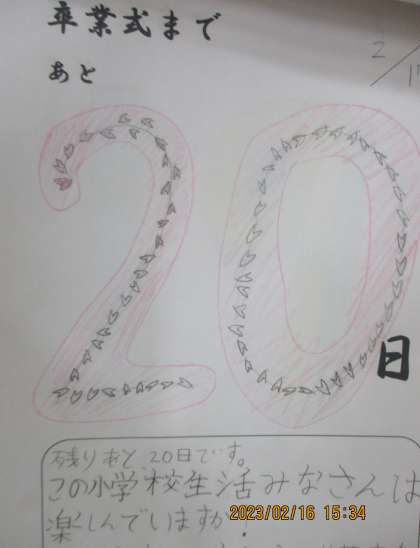 卒業式まで
2/1
あと
20
日
残りあと20日です。
この小学校生活みなさんは
楽しんでいますか!
2023/02/16 15:34